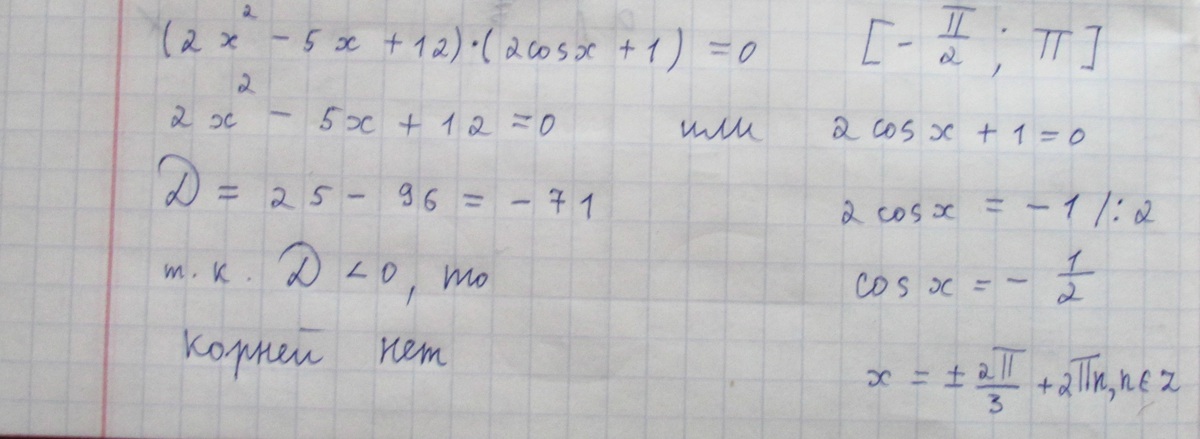 (2x² - 5x + 12)·(2cosx + 1) = 0 [-π/2; π]
2x² - 5x + 12 = 0 или 2cosx + 1 = 0
D = 25 - 96 = -71 2cosx = -1 /:2
т.к. D < 0, то cosx = -1/2
корней нет x = ± 2π/3 + 2πn, n ∈ z